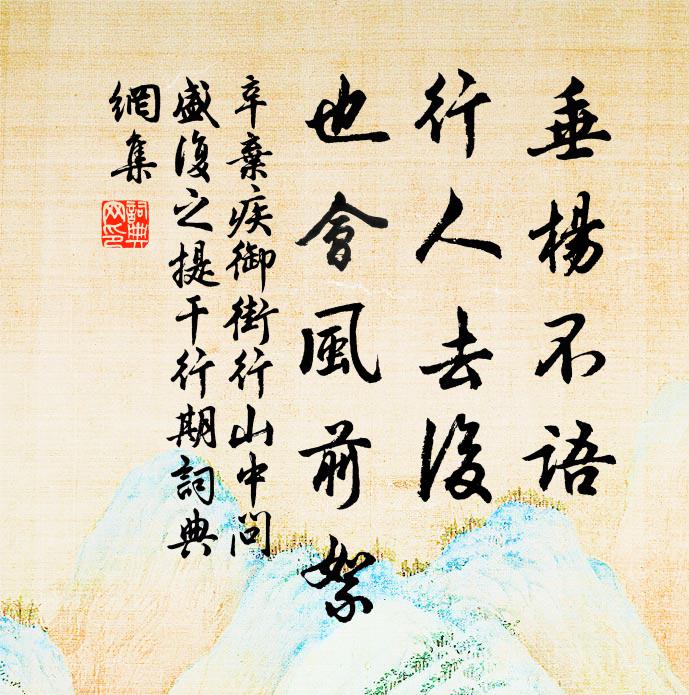 垂楊不語
行人去後
也會風前絮
辛棄疾御街行山中問
盛復之提干行期詞典
網集
詞典網印